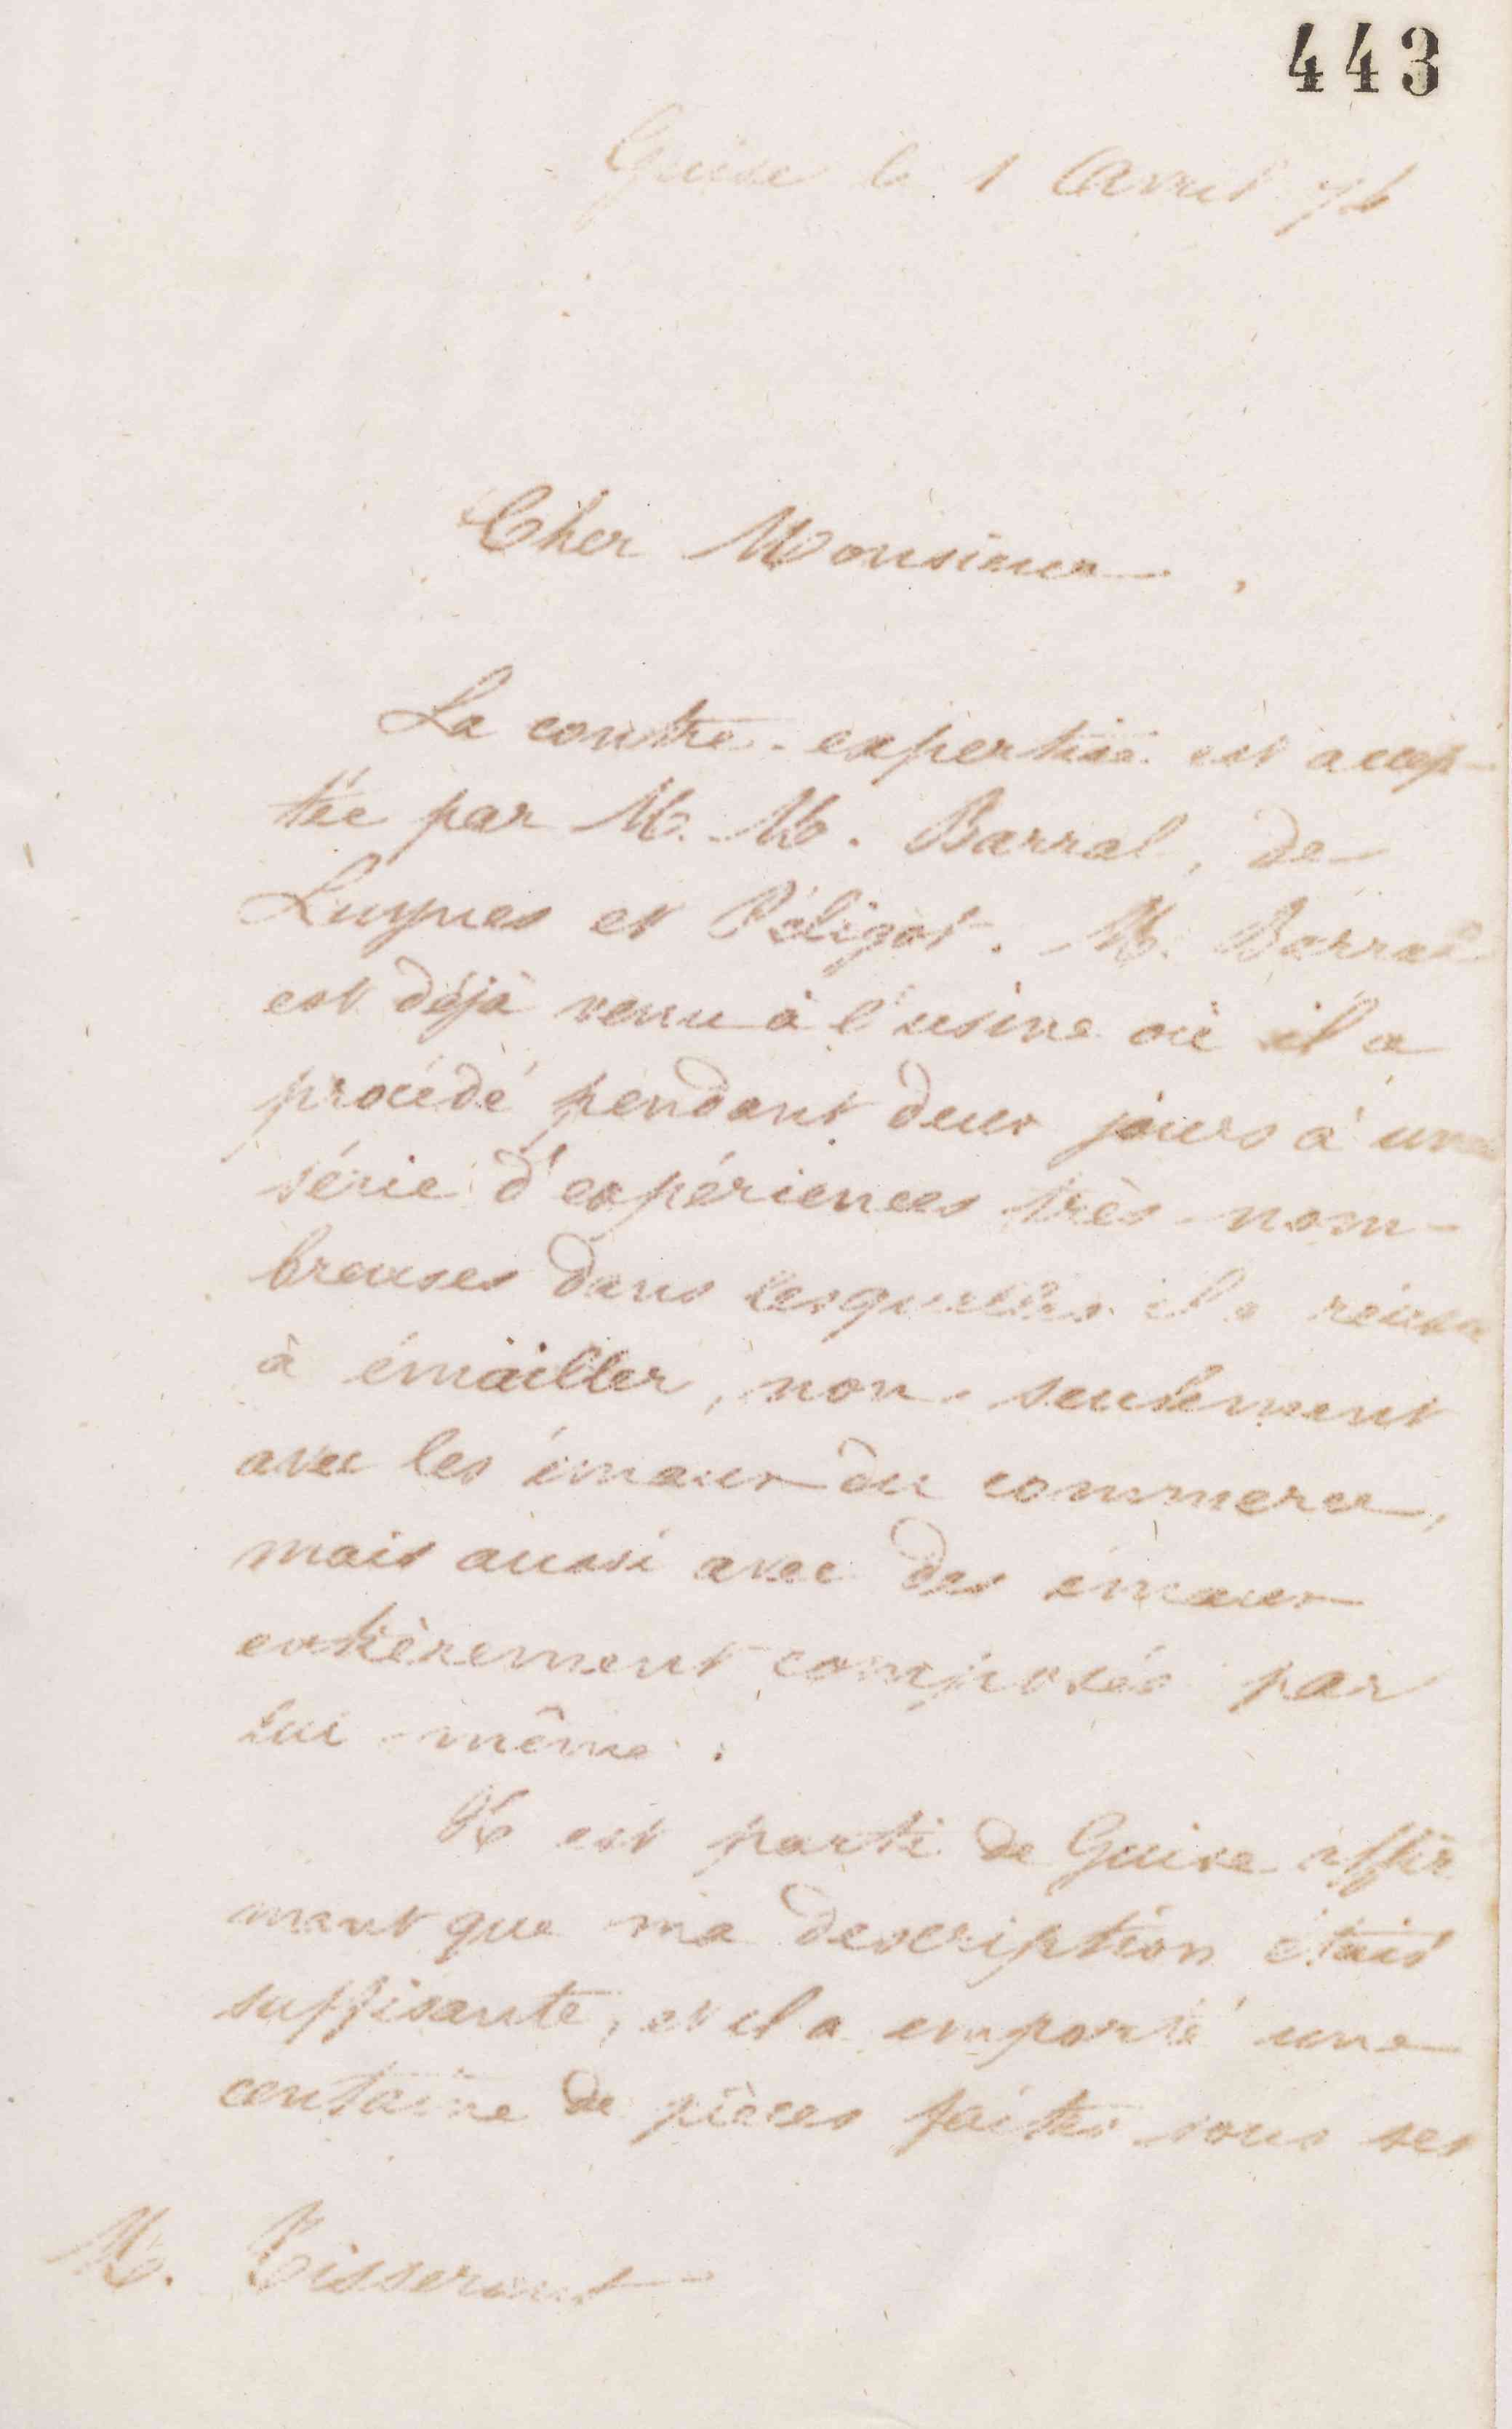 443
Guise le 1 Avril 76
Cher Monsieur,
La contre-expertise est accep-
tée par M. M. Barral, de
Luynes et Péligot. M. Barral
est déjà venu à l'usine où il a
procédé pendant deux jours à une
série d'expériences très nom-
breuses dans lesquelles il a réussi
à émailler, non seulement
avec les émaux du commerce,
mais aussi avec des émaux
entièrement composés par
lui-même.
Il est parti de Guise affir
mant que ma description était
suffisante, et il a emporté une
centaine de pièces faites sous ses
M. Tisserant